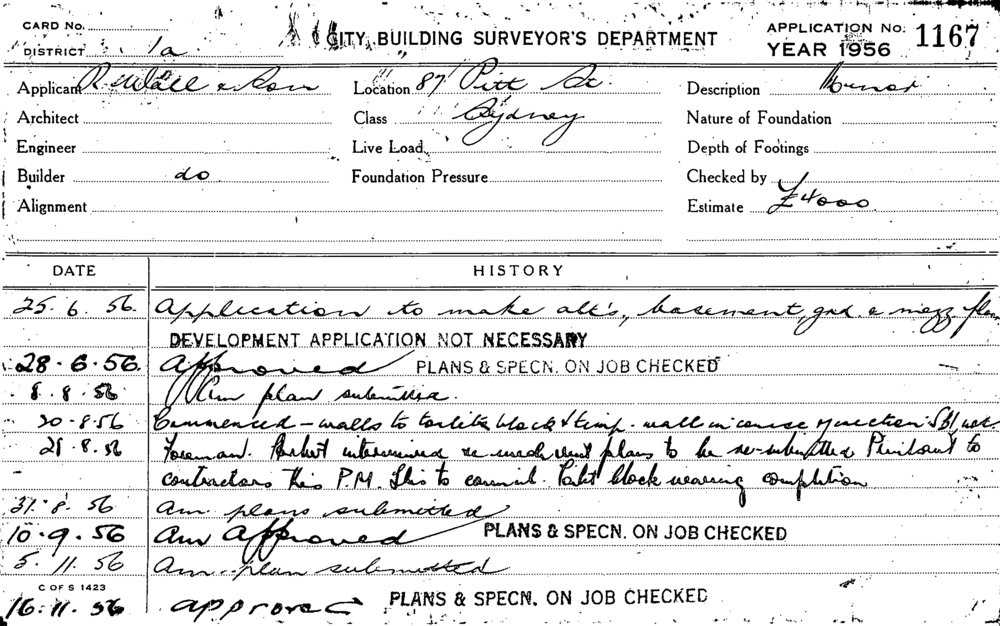 CARD No.
DISTRICT 1a
CITY BUILDING SURVEYOR'S DEPARTMENT
APPLICATION No. 1167
YEAR 1956
Applicant R. Wall & Son
Location 87 Pitt St.
Description
Architect
Class Sydney
Nature of Foundation
Engineer
Live Load
Depth of Footings
Builder do
Foundation Pressure
Checked by
Alignment
Estimate £4000
DATE HISTORY
25.6.56. Application to make alt's, basement, grd. & mezz. floors
DEVELOPMENT APPLICATION NOT NECESSARY
28.6.56. Approved PLANS & SPECN. ON JOB CHECKED
8.8.56 Am plan submitted.
20.8.56 Commenced - walls to toilet block & temp. wall in course of erection
28.8.56 Foreman interviewed plans to be re-submitted to
contractors this P.M. block nearing completion
31.8.56 Am. plans submitted
10.9.56 Am Approved PLANS & SPECN. ON JOB CHECKED
5.11.56 Am. plan submitted
C OF S 1423
16.11.56 approved PLANS & SPECN. ON JOB CHECKED